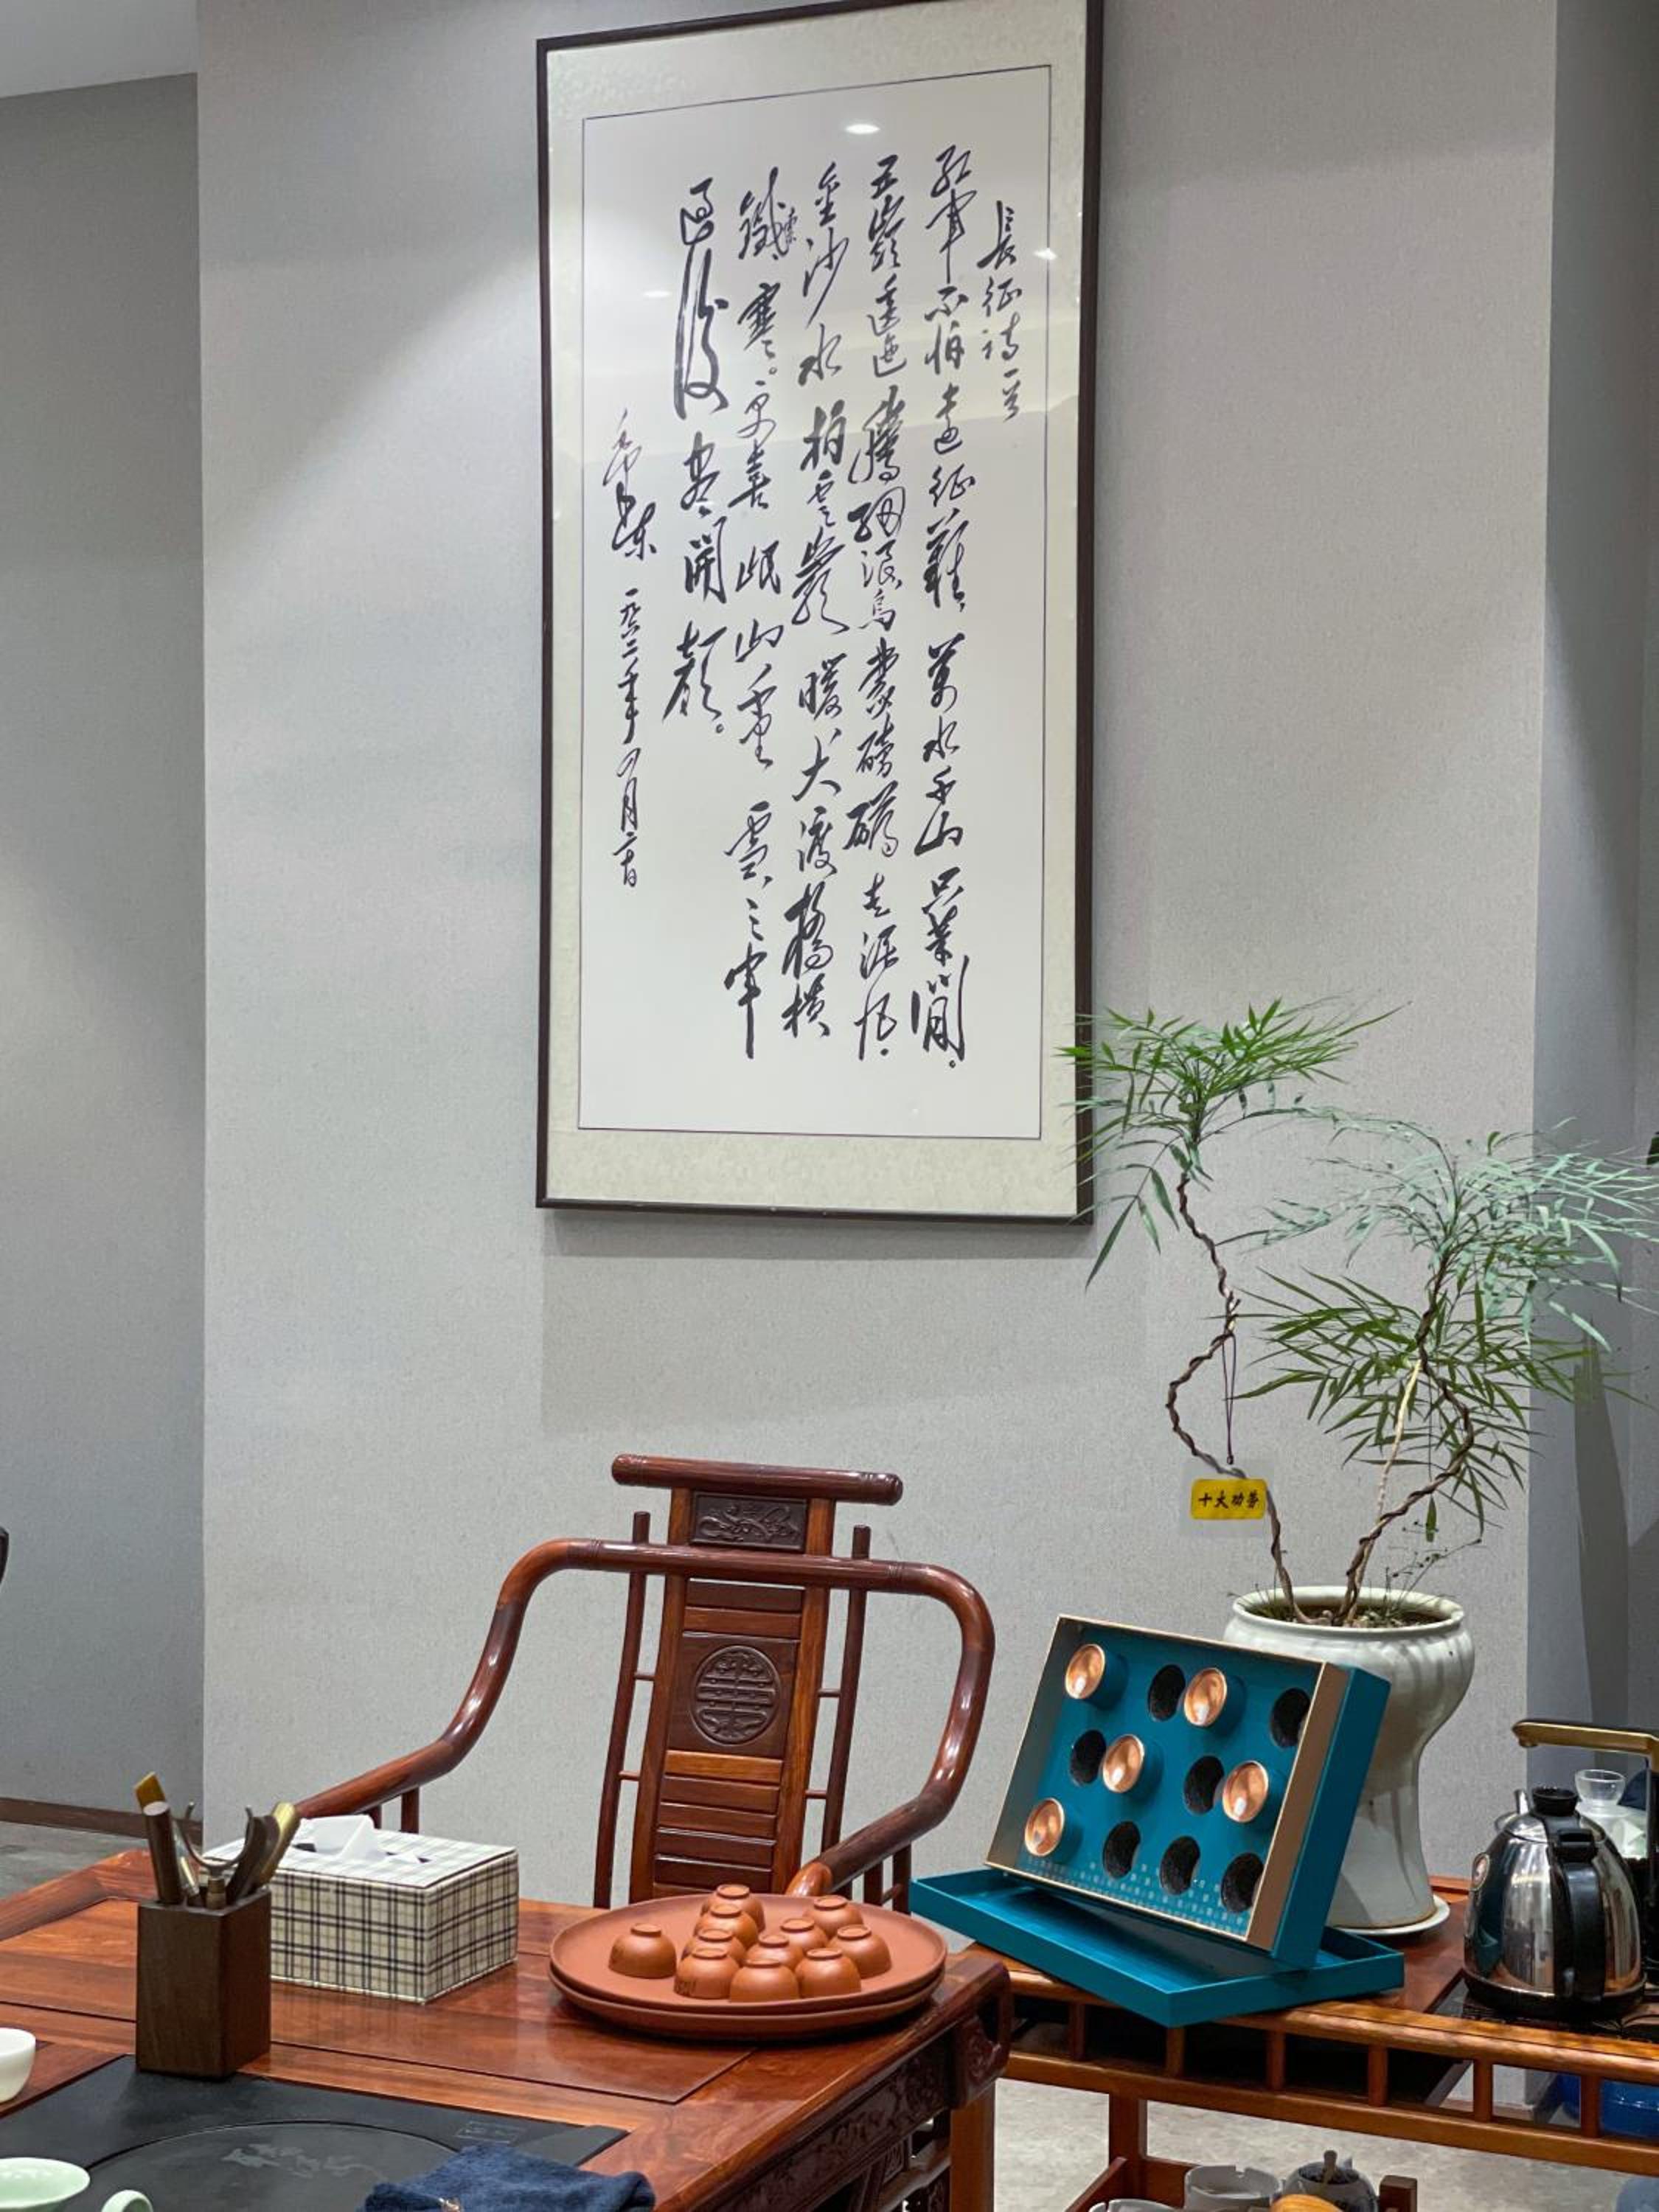 長征詩一首
紅軍不怕遠征難,萬水千山只等閒。
五嶺逶迤騰細浪烏蒙磅礴走泥丸.
金沙水拍雲崖暖大渡橋橫
鐵索寒。更喜岷山千里雪,三軍
過後盡開顏。
毛澤東 一九六二年四月二十日
十大功劳